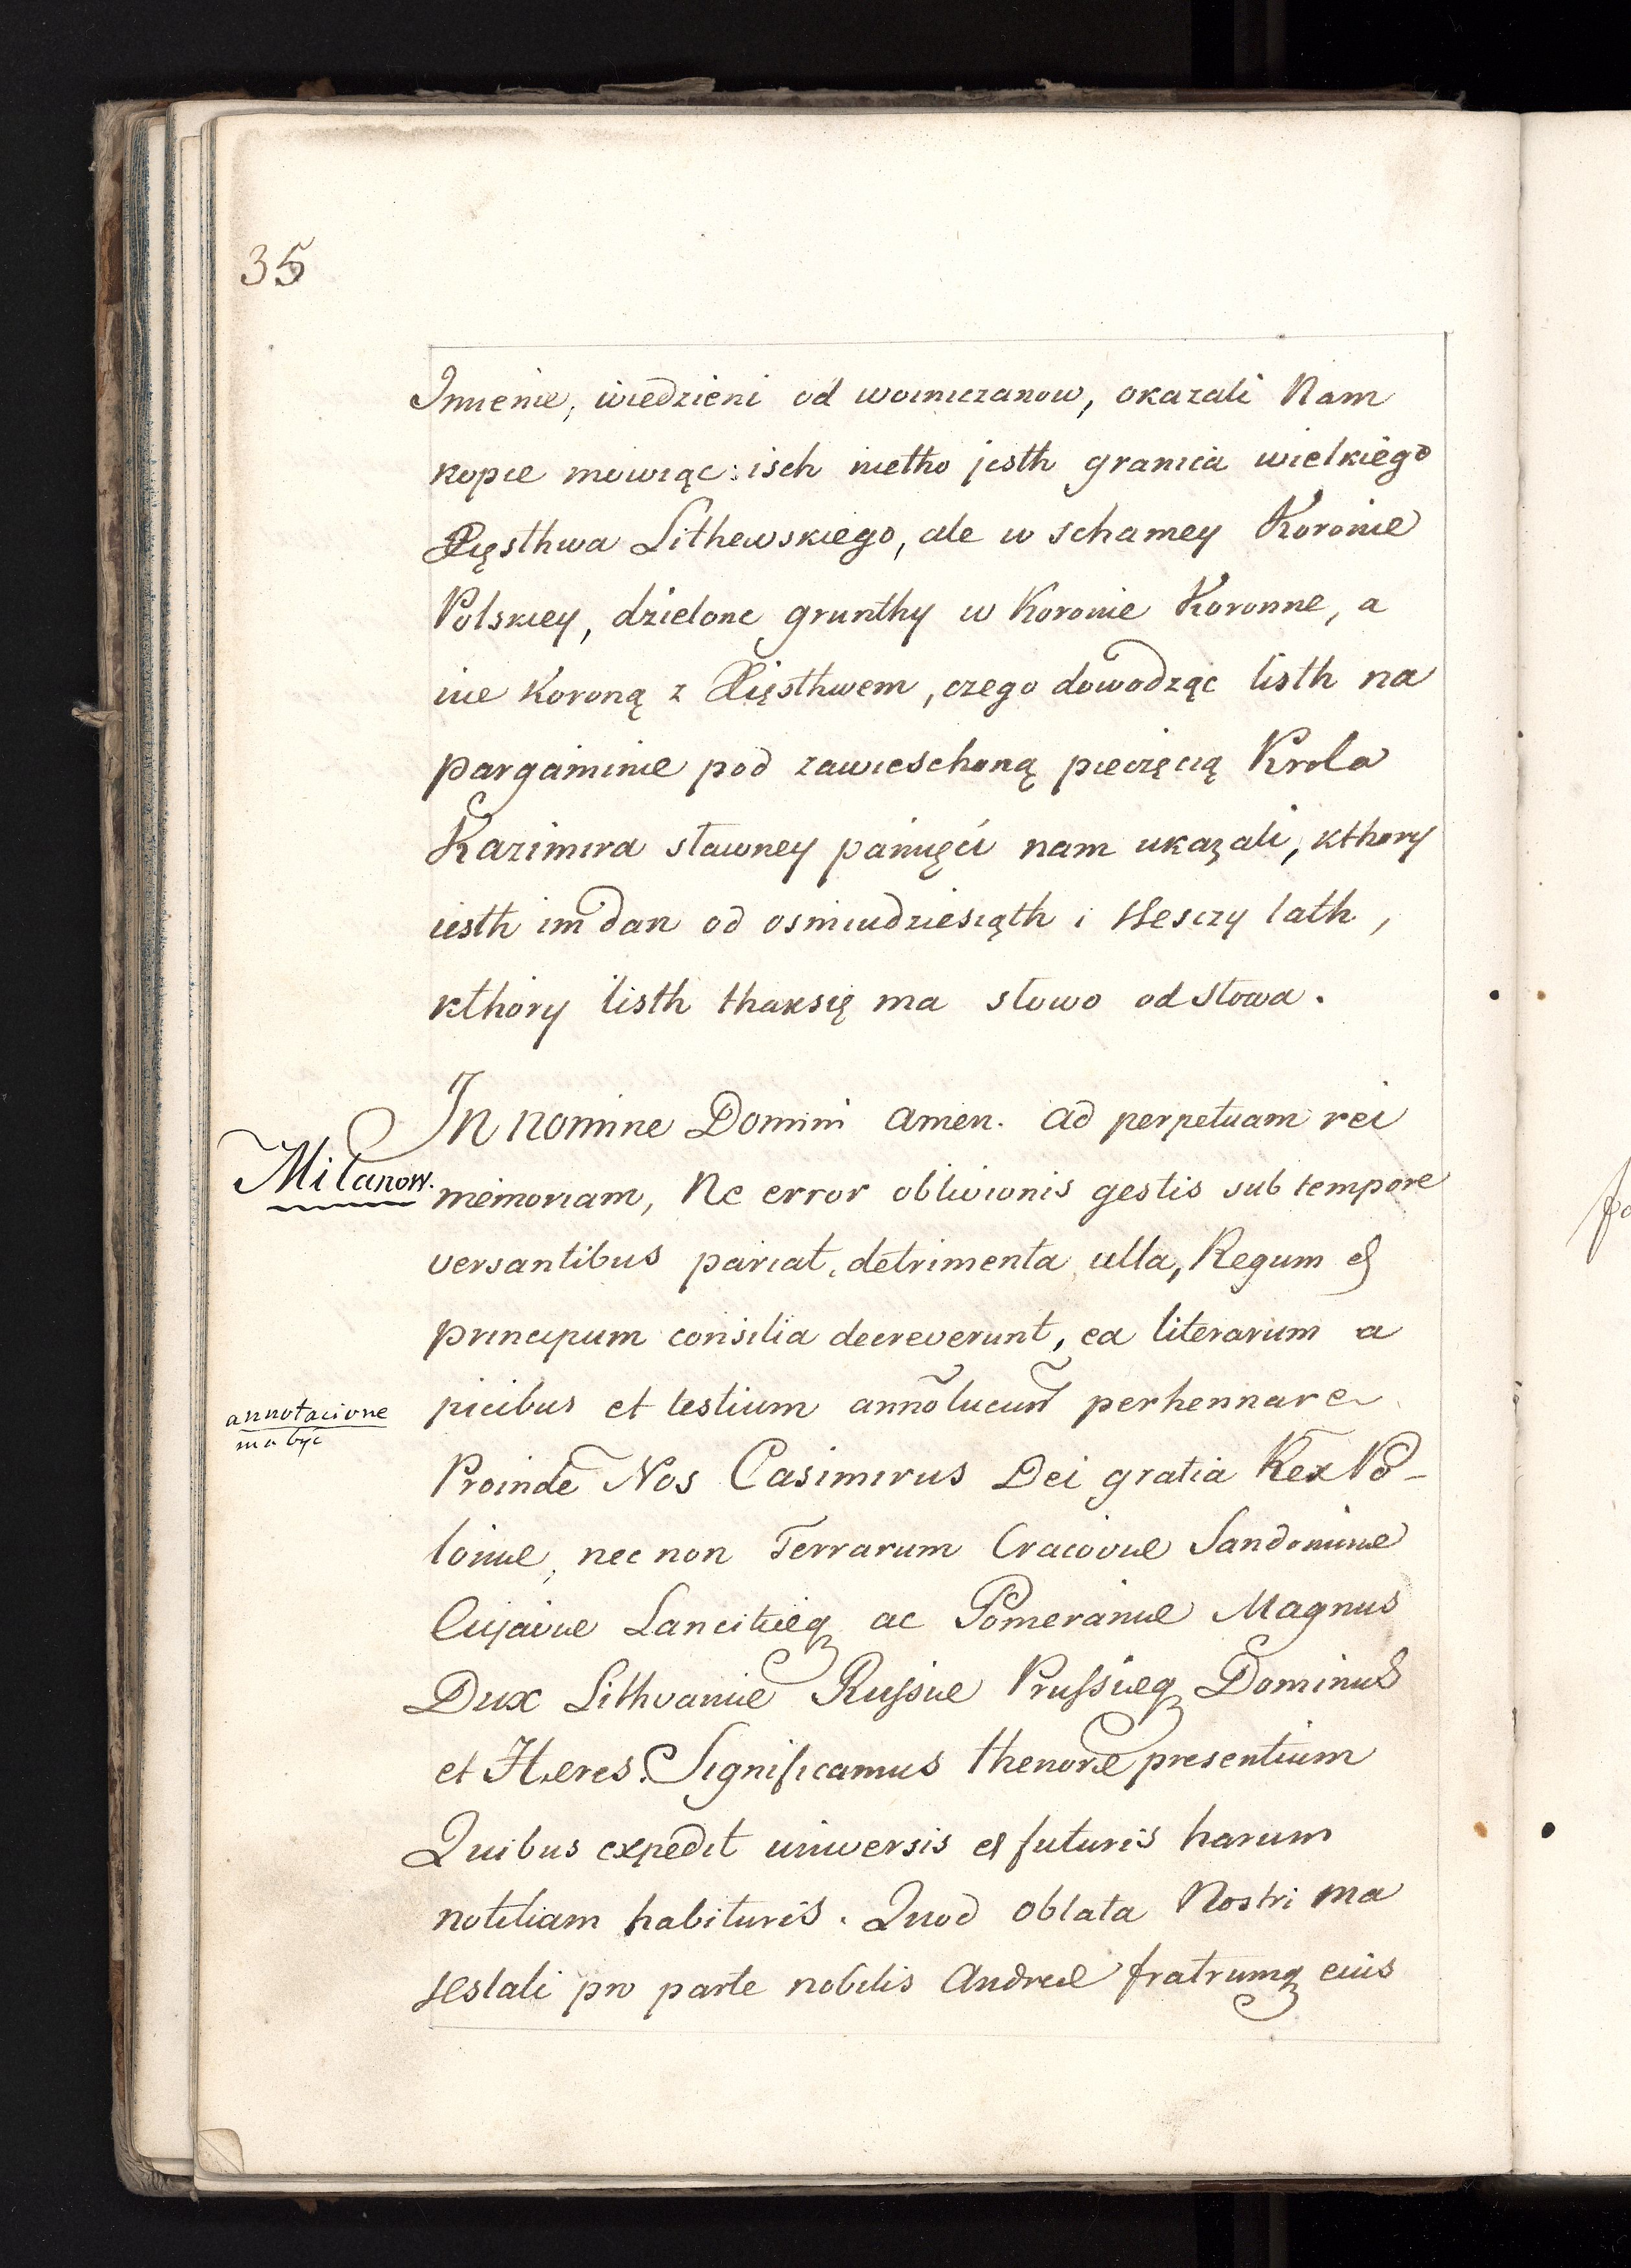 35
Imienie, wiedzieni od woiniczanow, okazali Nam
kopie mowiąc: isch nietho jesth granica wielkiego
Xięsthwa Lithewskiego, ale w schamey Koronie
Polskiey, dzielone grunthy w Koronie Koronne, a
nie Koroną z Xięsthwem, czego dowodząc listh na
pargaminie pod zawieschoną pieczęcią Krola
Kazimira sławney pamięći nam ukazali, kthory
iesth im dan od osmiudziesiąth i sesczy lath,
kthory listh thaksię ma słowo od słowa.
In nomine Domini Amen. Ad perpetuam rei
Milanow.
memoriam, Ne error oblivionis gestis sub tempore
versantibus pariat, detrimenta ulla, Regum et
principum consilia decreverunt, ea literarum a
annotacione
ma być
picibus et testium perhennare
Proinde Nos Casimirus Dei gratia Rex Po-
loniae, nec non Terrarum Cracoviae Sandomirie
Cujaviae Lancitieq ac Pomeraniae Magnus
Dux Lithvaniae Russiae Prussieq Dominus
et Heres. Significamus thenore presentium
Quibus expedit universis et futuris harum
notitiam habituris. Quod oblata Nostri ma
jestati pro parte nobilis Andreae fratrumq eius